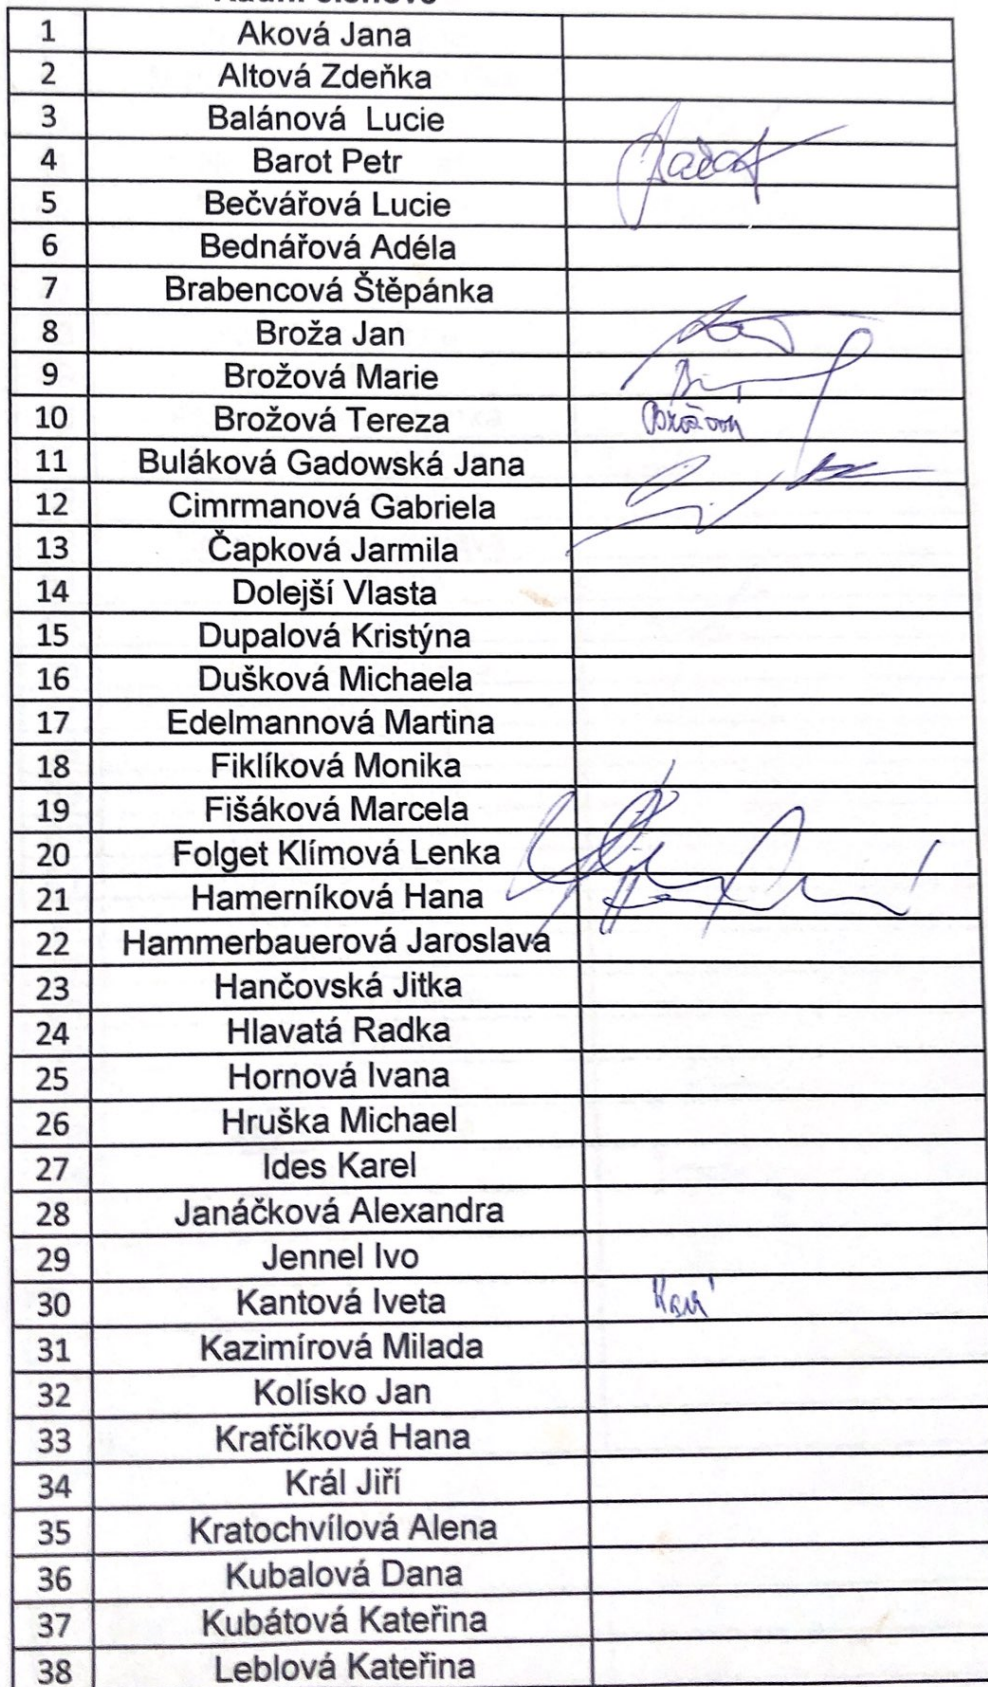 1 Aková Jana
2 Altová Zdeňka
3 Balánová Lucie
4 Barot Petr
5 Bečvářová Lucie
6 Bednářová Adéla
7 Brabencová Štěpánka
8 Broža Jan
9 Brožová Marie
10 Brožová Tereza
11 Buláková Gadowská Jana
12 Cimrmanová Gabriela
13 Čapková Jarmila
14 Dolejší Vlasta
15 Dupalová Kristýna
16 Dušková Michaela
17 Edelmannová Martina
18 Fiklíková Monika
19 Fišáková Marcela
20 Folget Klímová Lenka
21 Hamerníková Hana
22 Hammerbauerová Jaroslava
23 Hančovská Jitka
24 Hlavatá Radka
25 Hornová Ivana
26 Hruška Michael
27 Ides Karel
28 Janáčková Alexandra
29 Jennel Ivo
30 Kantová Iveta
31 Kazimírová Milada
32 Kolísko Jan
33 Krafčíková Hana
34 Král Jiří
35 Kratochvílová Alena
36 Kubalová Dana
37 Kubátová Kateřina
38 Leblová Kateřina